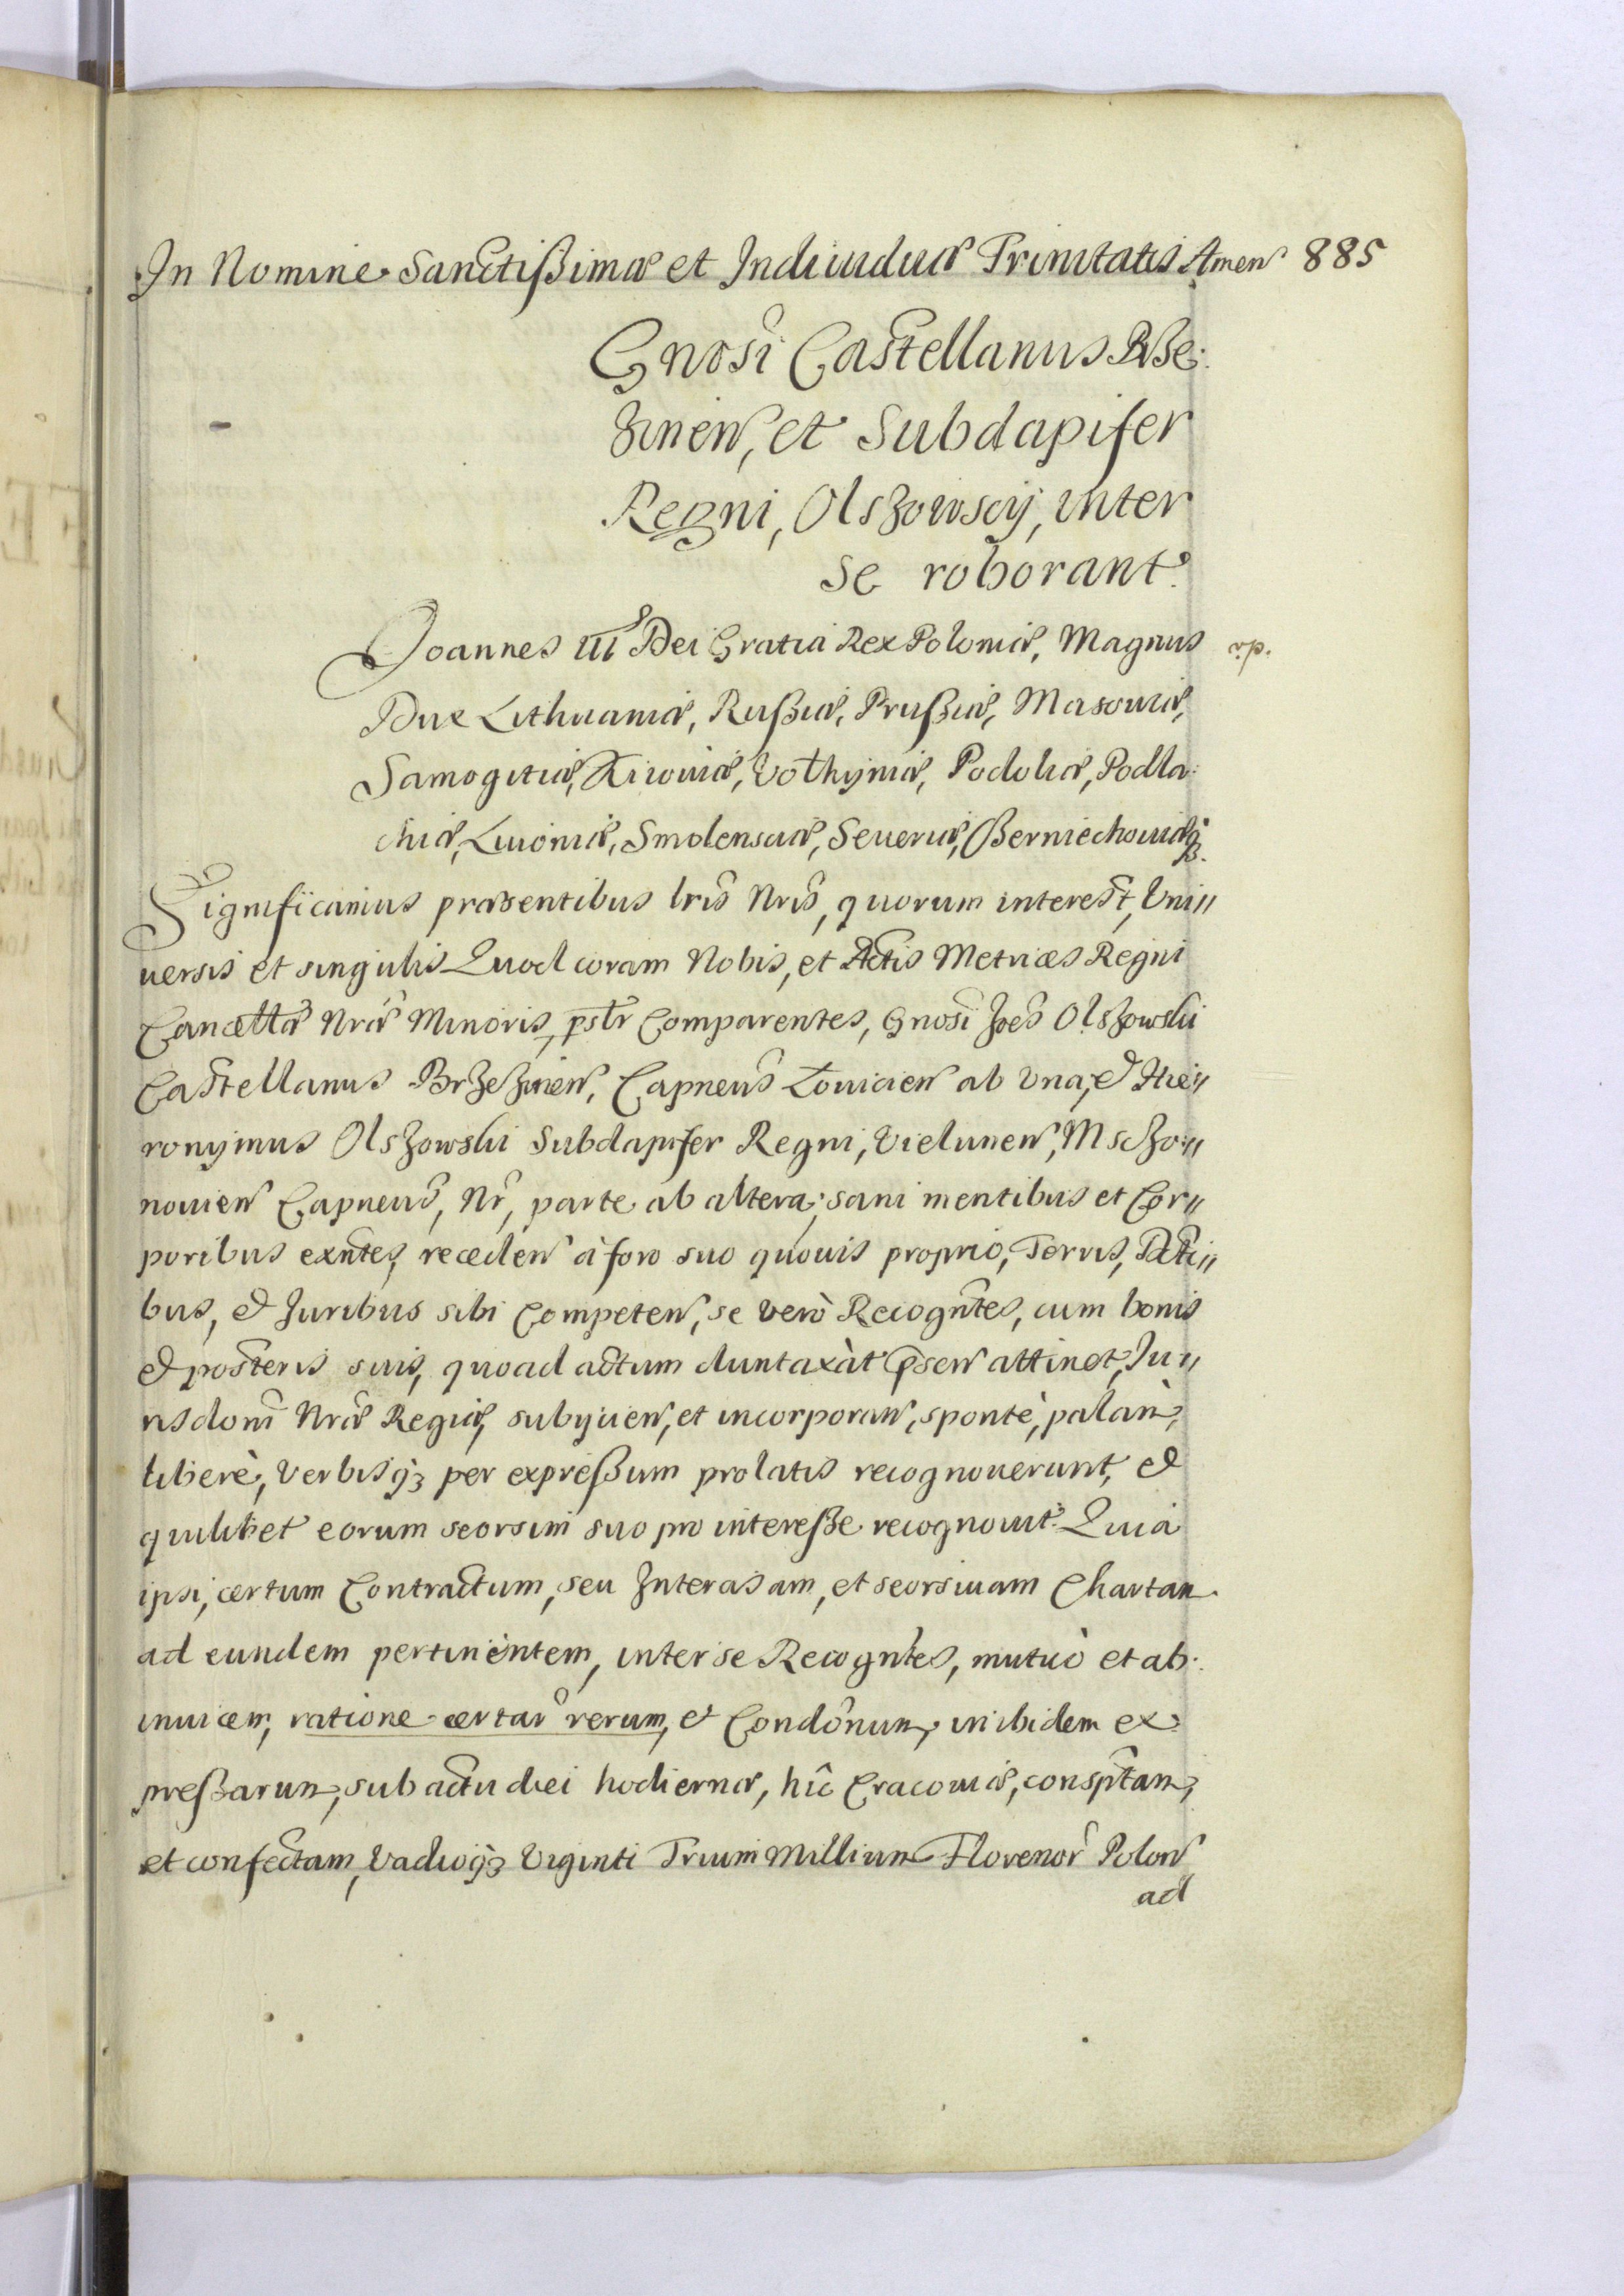 In Nomine Sanctißimæ et Indiuiduæ Trinitatis Amen 885
Gnosi Castellanus Brze:
zinen, et Subdapifer
Regni, Olszowscij, inter
se roborant.
Joannes III Dei Gratia Rex Poloniæ, Magnus
Dux Lithuaniæ, Rußiæ, Prußiæ, Masouiæ,
Samogitiæ, Kiiouiæ, Volhyniæ, Podoliæ, Podla:
chiæ, Liuoniæ, Smolensciæ, Seueriæ, Czerniechouiæq3.
Significamus præsentibus lris Nris, quorum interest, Vni„
uersis et singulis Quod coram Nobis, et Actis Metrices Regni
Cancellæ Nræ Minoris, pslr Comparentes, Gnosi Joes Olszowski
Castellanus Brzezinen, Capneus Louicien ab vna, et Hie„
ronymus Olszowski Subdapifer Regni, Vielunen, Msczo„
nouien Capneus, Nr, parte ab altera; sani mentibus et Cor„
poribus exntes, receden à foro suo quouis proprio, Terris, Ptti„
bus, et Juribus sibi Competen, se vero Recogntes, cum bonis
et posteris suis, quoad actum duntaxàt psen attinet, Ju„
risdoni Nræ Regiæ, subijcien, et incorporan, sponte, palàm,
liberè, verbisq3 per expreßum prolatis recognouerunt, et
quilibet eorum seorsim suo pro intereße recognouit. Quia
ipsi, certum Contractum, seu Intercisam, et seorsiuam Chartam
ad eundem pertinentem, inter se Recogntes, mutuò et ab:
inuicem, ratione certar rerum, et Condonum, inibidem ex
preßarum, sub actu diei hodiernæ, hic Cracouiæ, consptam,
et confectam, vadioq3 Viginti Trium Millium Florenor Polon
ad